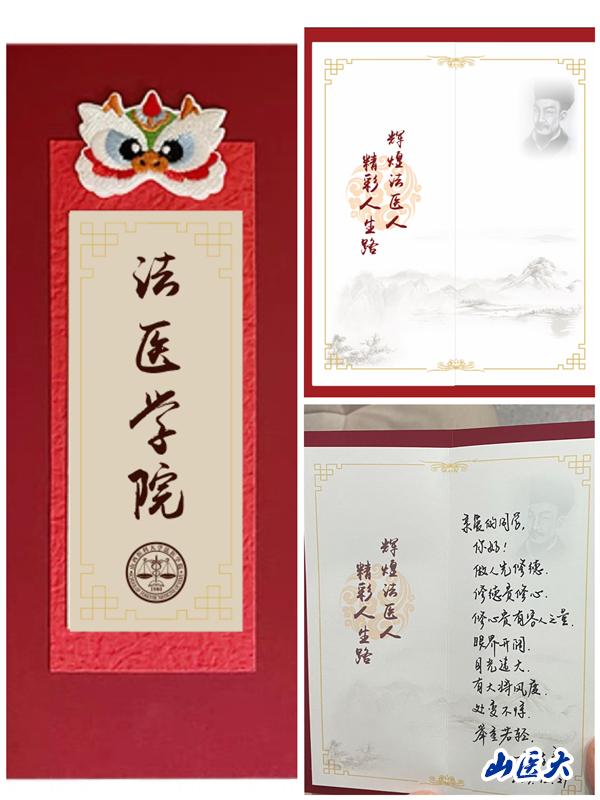 法医学院
辉煌法医人
精彩人生路
辉煌法医人
精彩人生路
亲爱的同学,
你好!
做人先修德.
修德贵修心.
修心贵有容人之量.
眼界开阔.
目光远大.
有大将风度.
处变不惊.
举重若轻.
山医大